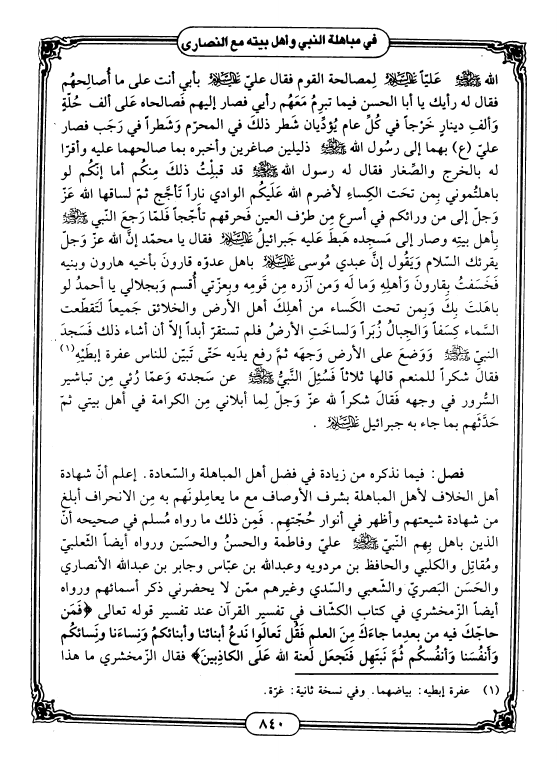 في مباهلة النبي وأهل بيته مع النصارى
الله ﷺ عَليّاً عَلَيْهِ السَّلَام لِمصالحة القوم فقال عليّ عَلَيْهِ السَّلَام بأبي أنت على ما أُصالِحهُم
فقال له رأيك يا أبا الحسن فيما تبرمُ مَعَهُم رأيي فصار إليهم فصَالحاه عَلى ألف حُلّةٍ
وَألفِ دينارٍ خَرْجاً في كُلِّ عام يُؤدِّيان شطر ذلكَ في المحرّم وَشَطراً في رَجَب فصار
عليّ (ع) بهما إلى رسُول الله ﷺ ذليلين صاغرين وأخبره بما صالحهما عليه وأقرّا
له بالخرج والصَّغار فقال له رسول الله ﷺ قد قبلتُ ذلكَ مِنكُم أما إنكُم لو
باهلتُموني بِمن تحَت الكِساءِ لأضرم الله عَلَيكُم الوادي ناراً تَأجّج ثمّ لساقها الله عَزّ
وَجلّ إلى من ورائكم في أسرع مِن طرْف العين فَحرقهم تأجّجاً فَلمّا رَجعَ النّبي ﷺ
بِأهل بيتِهِ وصار إلى مَسجده هَبطَ عَليه جَبرائيلُ عَلَيْهِ السَّلَام فقال يا محمّد إنَّ الله عزّ وَجلّ
يقرئك السّلام وَيَقُول إنَّ عبدي مُوسى عَلَيْهِ السَّلَام باهل عدوّه قارونَ بأخيه هارون وبنيه
فَخَسَفتُ بِقارونَ وَأهلِهِ وَما لَه وَمن آزره مِن قَومه وبعزّتي أُقسم وَبجلالي يا أحمدُ لو
باهَلتَ بِكَ وَبمن تحت الكَساء من أهلِكَ أهل الأرض والخلائق جَميعاً لَتَقطّعت
السَّماء كِسَفاً وَالجِبالُ زُبَراً وَلساخَتِ الأرضُ فلم تستقرّ أبداً إلاَّ أن أشاء ذلك فَسَجدَ
النبيّ ﷺ وَوَضعَ على الأرض وَجهَه ثمَّ رفع يدَيه حَتّى تَبيّن للناس عفرة إبطَيْهِ(١)
فقالَ شكراً للمنعم قالها ثلاثاً فَسُئِلَ النَّبيُّ ﷺ عن سَجدته وَعمّا رُئي مِن تباشير
السُّرور في وجهه فَقالَ شكراً لله عزّ وَجلّ لِما أبلاني مِن الكرامة في أهل بيتي ثمّ
حَدّثَهم بما جاء به جبرائيل عَلَيْهِ السَّلَام .
فصل: فيما نذكره من زيادة في فضل أهل المباهلة والسّعادة. إعلم أنّ شهادة
أهل الخلاف لأهل المباهلة بشرف الأوصاف مع ما يعامِلونَهم به مِن الانحراف أبلغ
من شهادة شيعتهم وأظهر في أنوار حُجّتهِم. فَمِن ذلك ما رواه مُسلم في صحيحه أنّ
الذين باهل بِهم النّبيّ ﷺ عليّ وفاطمة والحسنُ والحسَين ورواه أيضاً الثعلبيّ
ومُقاتِل والكلبي والحافظ بن مردويه وعبدالله بن عبّاس وجابر بن عبدالله الأنصاري
والحسَن البَصريّ والشّعبي والسّدي وغيرهم ممّن لا يحضرني ذكر أسمائهم ورواه
أيضاً الزّمخشري في كتاب الكشّاف في تفسير القرآن عند تفسير قوله تعالى ﴿فَمَن
حاجّكَ فيه من بعدِما جاءَكَ مِنَ العلمِ فَقُل تَعالَوا نَدعُ أبنائنا وأبنائكمُ وَنِساءَنا وَنِسائكُم
وَأنفُسَنا وَأنفُسكُم ثُمَّ نَبتَهِل فَنَجعَل لَعنةَ الله عَلَى الكاذِبينَ﴾ فقال الزّمخشري ما هذا
(١) عفرة إبطيه: بياضهما. وفي نسخة ثانية: غرّة.
٨٤٠